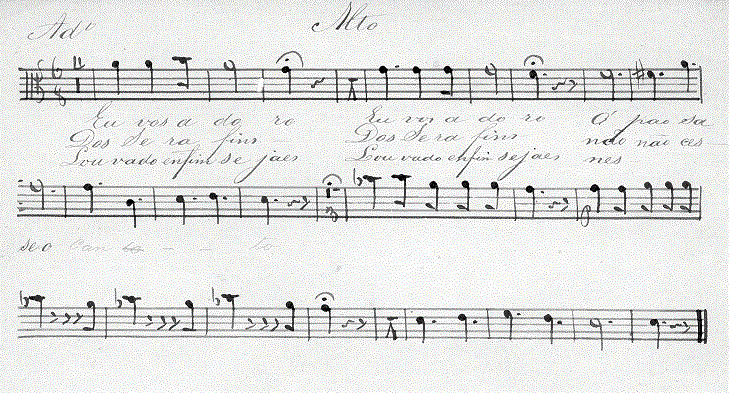 Ad.º Alto
Eu vos a do ro Eu vos a do ro Ó pao sa
Dos Se ra fins Dos Se ra fins não ces
Lou vado enfim se jaes Lou vado enfim se jaes nes